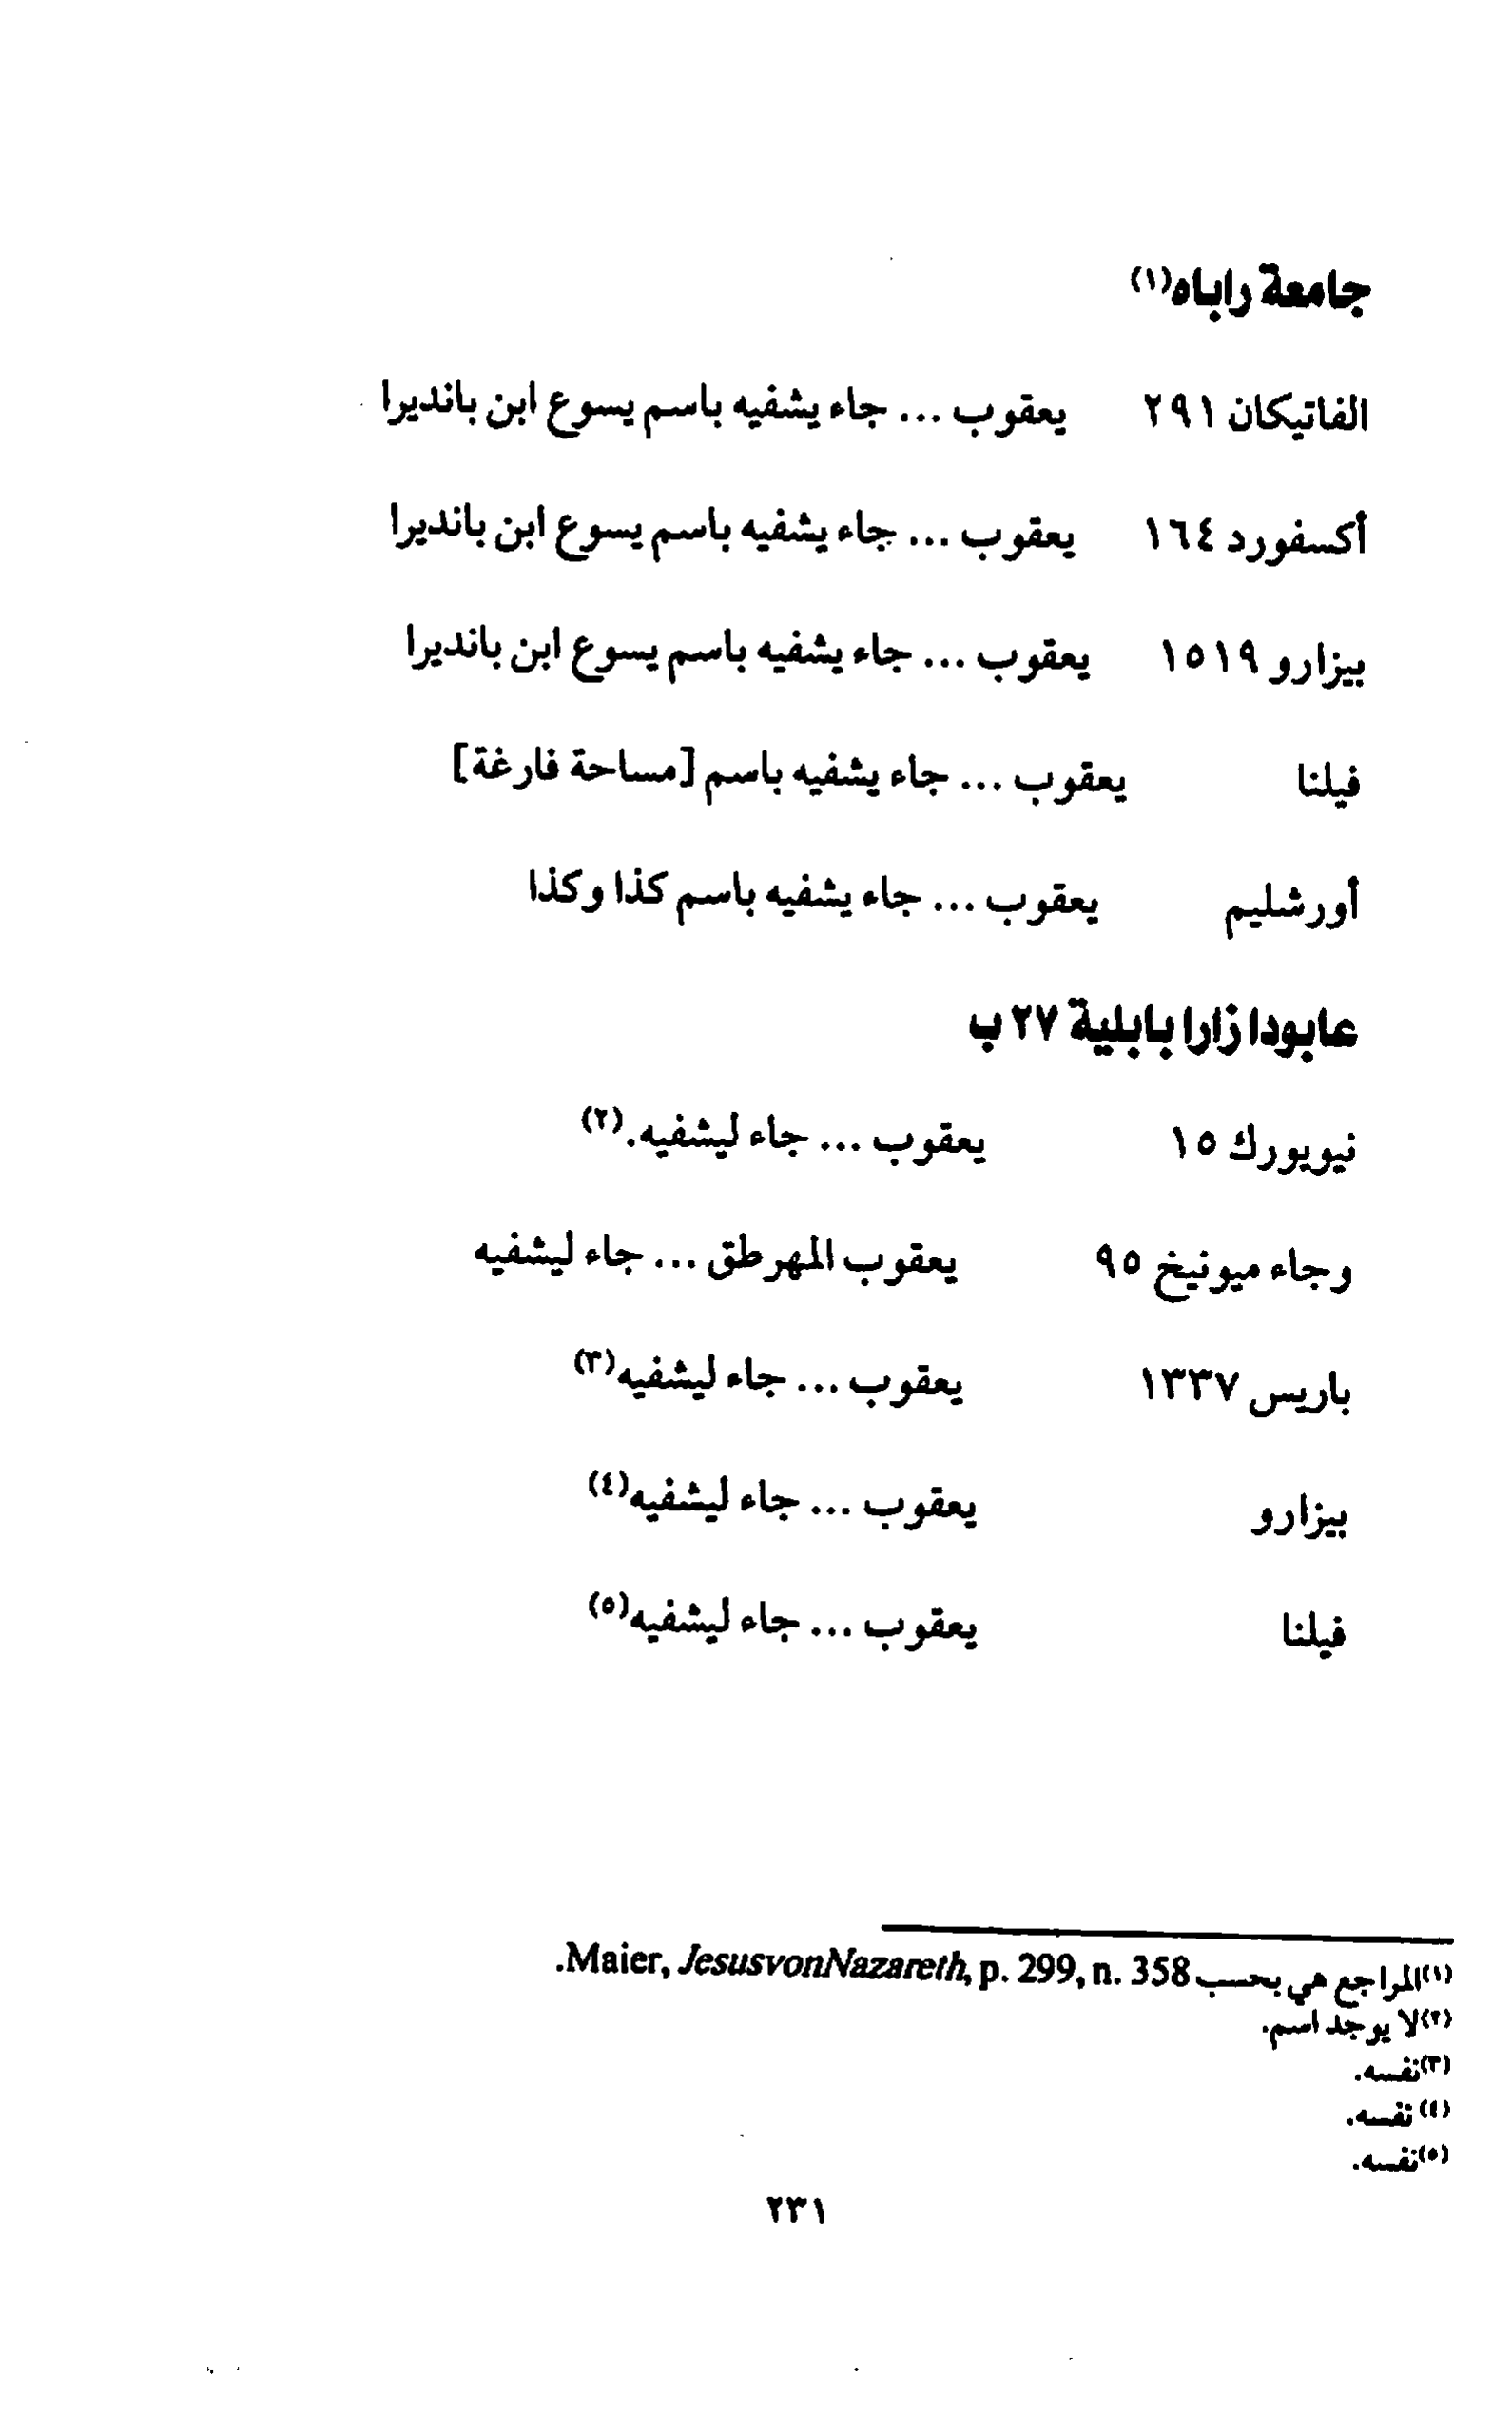 جامعة راباه(١)
الفاتيكان ٢٩١ يعقوب ... جاء يشفيه باسم يسوع ابن بانديرا
أكسفورد ١٦٤ يعقوب ... جاء يشفيه باسم يسوع ابن بانديرا
بيزارو ١٥١٩ يعقوب ... جاء يشفيه باسم يسوع ابن بانديرا
فيلنا يعقوب ... جاء يشفيه باسم [مساحة فارغة]
أورشليم يعقوب ... جاء يشفيه باسم كذا وكذا
عابودا زارا بابلية ٢٧ ب
نيويورك ١٥ يعقوب ... جاء ليشفيه.(٢)
وجاء ميونيخ ٩٥ يعقوب المهرطق ... جاء ليشفيه
باريس ١٣٣٧ يعقوب ... جاء ليشفيه(٣)
بيزارو يعقوب ... جاء ليشفيه(٤)
فيلنا يعقوب ... جاء ليشفيه(٥)
(١)المراجع هي بحسب Maier, JesusvonNazareth, p. 299, n. 358.
(٢)لا يوجد اسم.
(٣)نفسه.
(٤) نفسه.
(٥)نفسه.
٢٣١